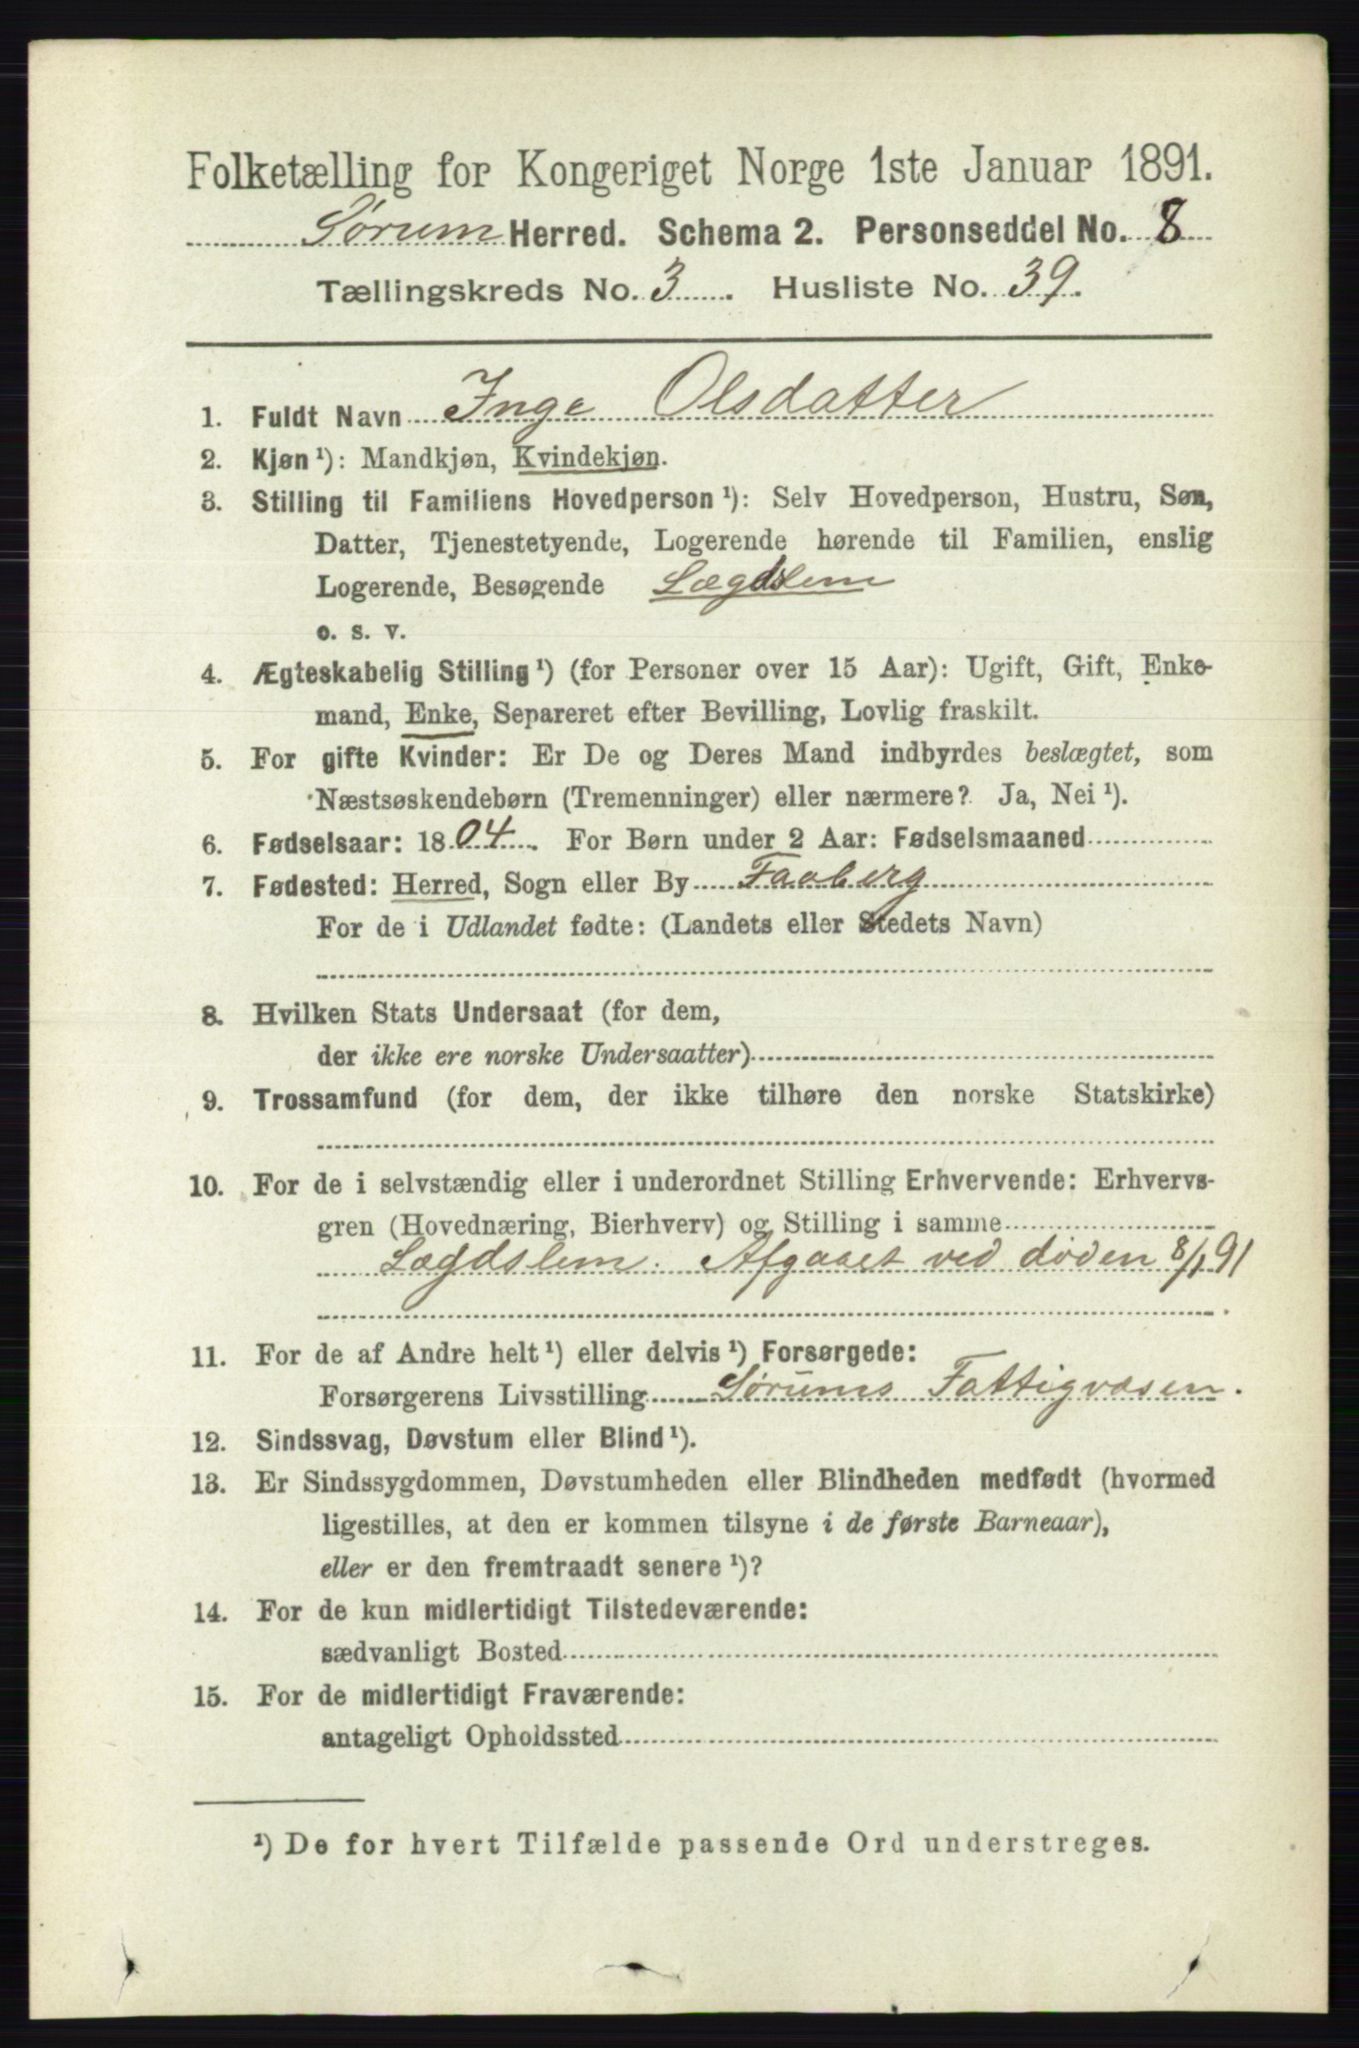 Folketælling for Kongeriget Norge 1ste Januar 1891.
Sørum Herred. Schema 2. Personseddel No. 8
Tællingskreds No. 3. Husliste No. 39.
1. Fuldt Navn Inge Olsdatter
2. Kjøn ¹): Mandkjøn, Kvindekjøn.
3. Stilling til Familiens Hovedperson ¹): Selv Hovedperson, Hustru, Søn,
Datter, Tjenestetyende, Logerende hørende til Familien, enslig
Logerende, Besøgende Lægdslem
o. s. v.
4. Ægteskabelig Stilling ¹) (for Personer over 15 Aar): Ugift, Gift, Enke-
mand, Enke, Separeret efter Bevilling, Lovlig fraskilt.
5. For gifte Kvinder: Er De og Deres Mand indbyrdes beslægtet, som
Næstsøskendebørn (Tremenninger) eller nærmere? Ja, Nei ¹).
6. Fødselsaar: 1804. For Børn under 2 Aar: Fødselsmaaned
7. Fødested: Herred, Sogn eller By Faaberg
For de i Udlandet fødte: (Landets eller Stedets Navn)
8. Hvilken Stats Undersaat (for dem,
der ikke ere norske Undersaatter)
9. Trossamfund (for dem, der ikke tilhøre den norske Statskirke)
10. For de i selvstændig eller i underordnet Stilling Erhvervende: Erhvervs-
gren (Hovednæring, Bierhverv) og Stilling i samme
Lægdslem. Afgaaet ved døden 8/1 91
11. For de af Andre helt ¹) eller delvis ¹) Forsørgede:
Forsørgerens Livsstilling Sørums Fattigvæsen.
12. Sindssvag, Døvstum eller Blind ¹).
13. Er Sindssygdommen, Døvstumheden eller Blindheden medfødt (hvormed
ligestilles, at den er kommen tilsyne i de første Barneaar),
eller er den fremtraadt senere ¹)?
14. For de kun midlertidigt Tilstedeværende:
sædvanligt Bosted
15. For de midlertidigt Fraværende:
antageligt Opholdssted
¹) De for hvert Tilfælde passende Ord understreges.